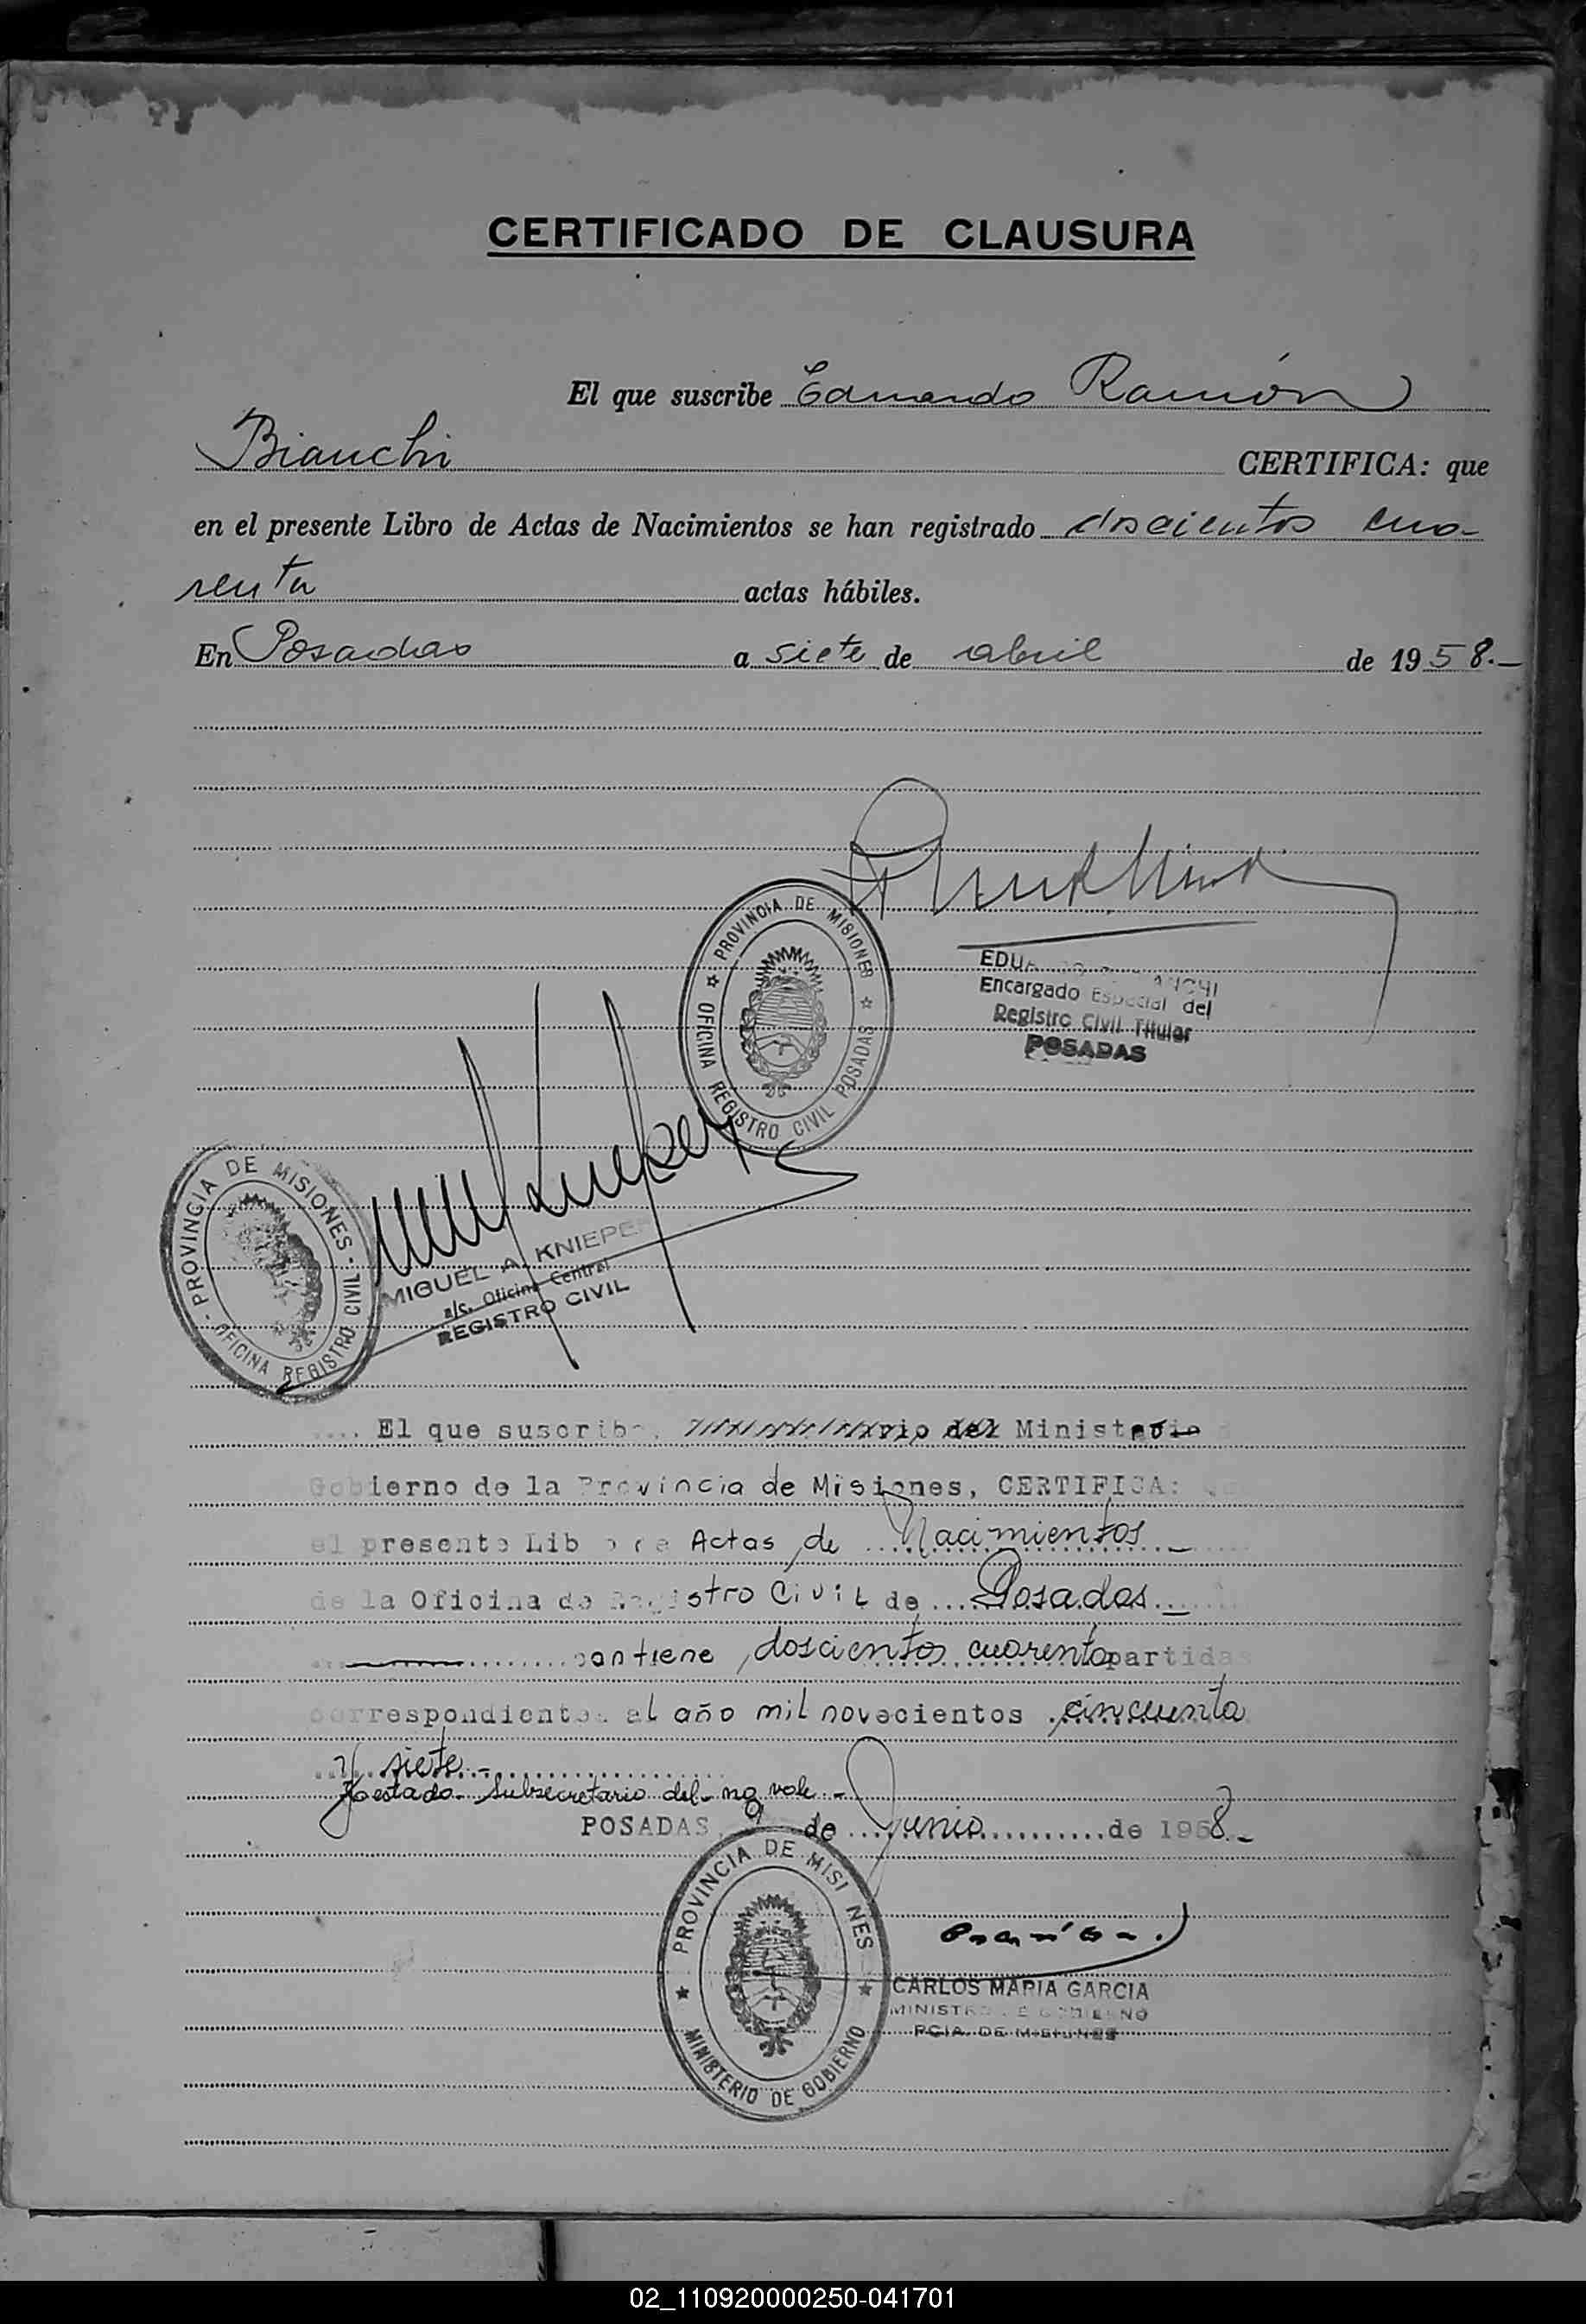 CERTIFICADO DE CLAUSURA
El que suscribe Eduardo Ramón
Bianchi CERTIFICA: que
en el presente Libro de Actas de Nacimientos se han registrado doscientos cua-
renta actas hábiles.
En Posadas a siete de abril de 1958.-
PROVINCIA DE MISIONES
OFICINA REGISTRO CIVIL POSADAS
Encargado Especial del
Registro Civil Titular
POSADAS
PROVINCIA DE MISIONES
OFICINA REGISTRO CIVIL
MIGUEL A. KNIEPER
a/c. Oficina Central
REGISTRO CIVIL
El que suscribe, Ministerio
Gobierno de la Provincia de Misiones, CERTIFICA:
el presente Libro de Actas de Nacimientos
de la Oficina de Registro Civil de Posadas
contiene doscientos cuarenta partidas
correspondientes al año mil novecientos cincuenta
y siete.-
Testado - Subsecretario del - no vale.-
POSADAS, 9 de Junio de 1958.-
PROVINCIA DE MISI NES
MINISTERIO DE GOBIERNO
CARLOS MARIA GARCIA
MINISTRO DE GOBIERNO
PCIA. DE MISIONES
02_110920000250-041701